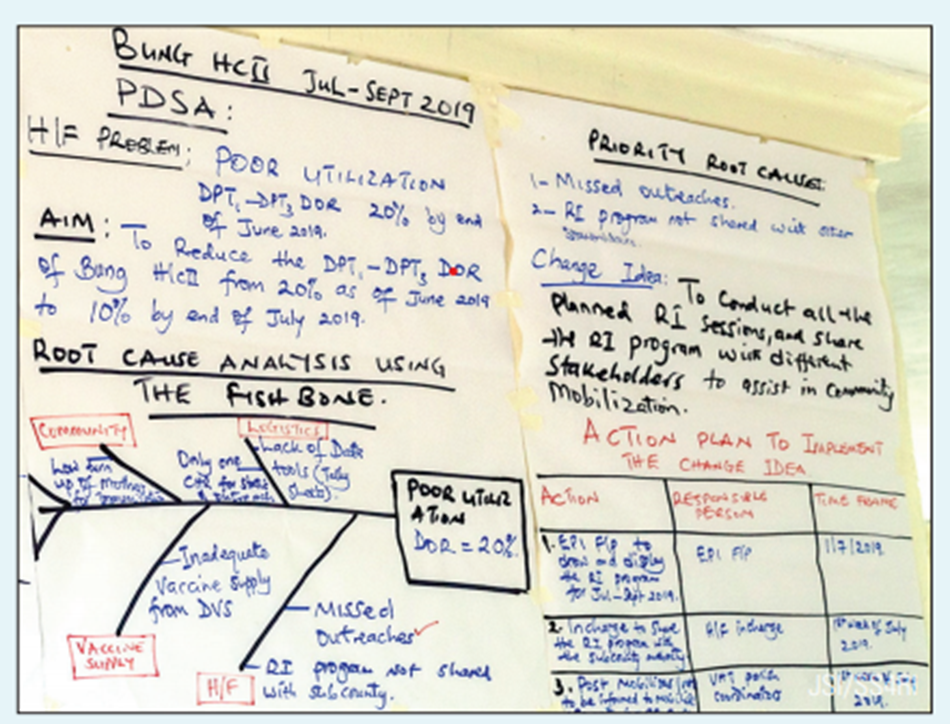 BUNG HCII JUL-SEPT 2019
PDSA:
H/F PROBLEM: POOR UTILIZATION
DPT₁-DPT₃ DOR 20% by end
of June 2019.
AIM: To Reduce the DPT₁-DPT₃ DOR
of Bung H/CII from 20% as of June 2019
to 10% by end of July 2019.
ROOT CAUSE ANALYSIS USING
THE FISH BONE.
COMMUNITY
Low turn
up of mothers
for immunization
LOGISTICS
Only one
for
& outreach
Lack of Data
tools (Tally
sheets).
POOR UTILIZ
ATION
DOR = 20%.
Inadequate
Vaccine supply
from DVS
VACCINE
SUPPLY
Missed
Outreaches ✓
RI program not shared
with subcounty.
H/F
PRIORITY ROOT CAUSES:
1- Missed Outreaches.
2- RI program not shared with other
Change Idea: To Conduct all the
Planned RI Sessions, and share
the RI program with different
Stakeholders to assist in Community
Mobilization.
ACTION PLAN TO IMPLEMENT
THE CHANGE IDEA
ACTION RESPONSIBLE PERSON TIME FRAME
1. EPI F/p to
draw and display
the RI program
for Jul-Sept 2019.
EPI F/P
1/7/2019
2. Incharge to share
the RI program with
the subcounty
H/F incharge
1st week of July
2019.
3. Post
to be informed to mobilise
VHT parish
coordinators
2019.
JSI/SS4H